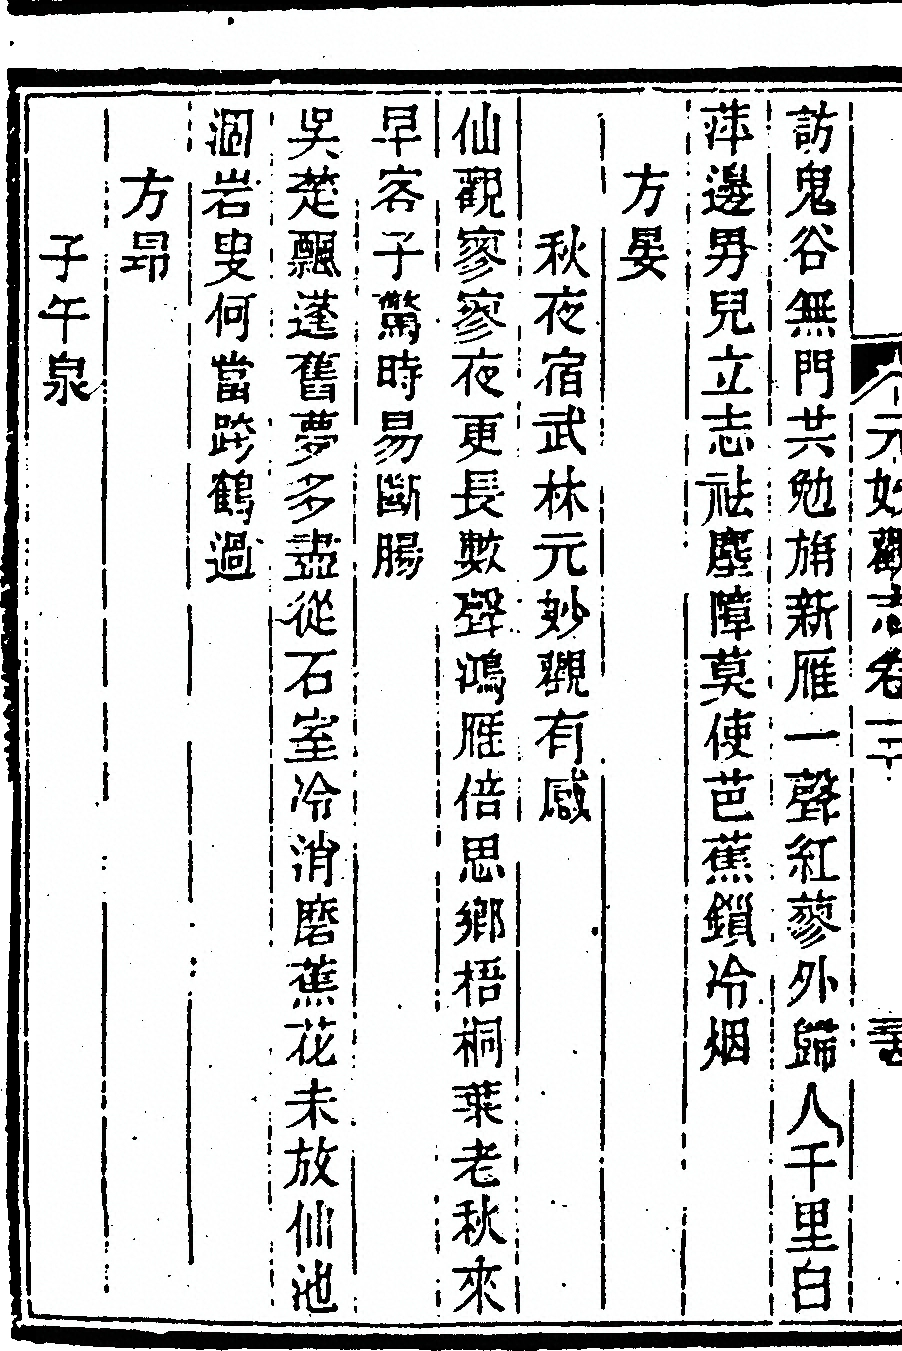 元妙觀志卷二
訪鬼谷無門共勉旃新雁一聲紅蓼外歸人千里白
萍邊男兒立志祛塵障莫使芭蕉鎖冷烟
方晏
秋夜宿武林元妙觀有感
仙觀寥寥夜更長數聲鴻雁倍思鄉梧桐葉老秋來
早客子驚時易斷腸
吳楚飄蓬舊夢多盡從石室冷消磨蕉花未放仙池
涸岩叟何當跨鶴過
方昂
子午泉